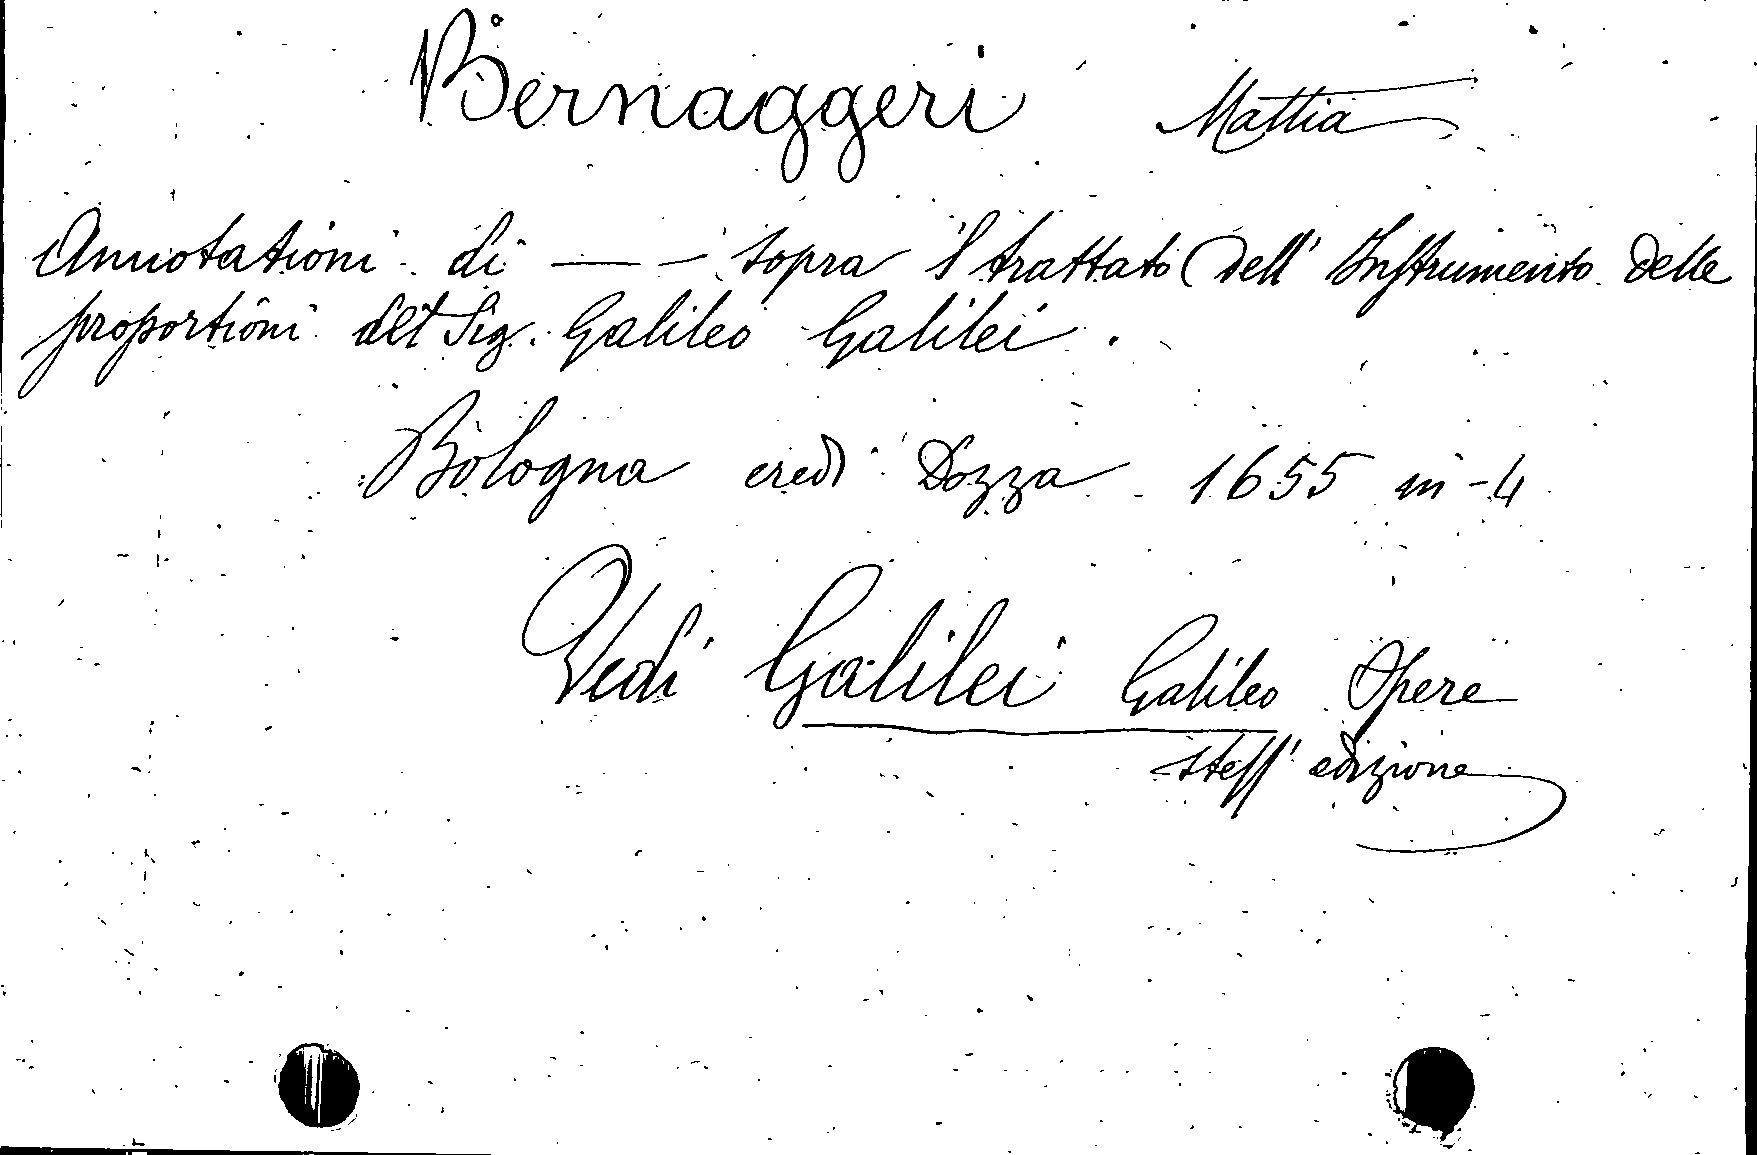 Bernaggeri Mattia
Annotationi di — — sopra il trattato dell' Instrumento delle
proportioni del Sig. Galileo Galilei.
Bologna eredi Dozza 1655 in-4
Vedi Galilei Galileo Opere
stess' edizione